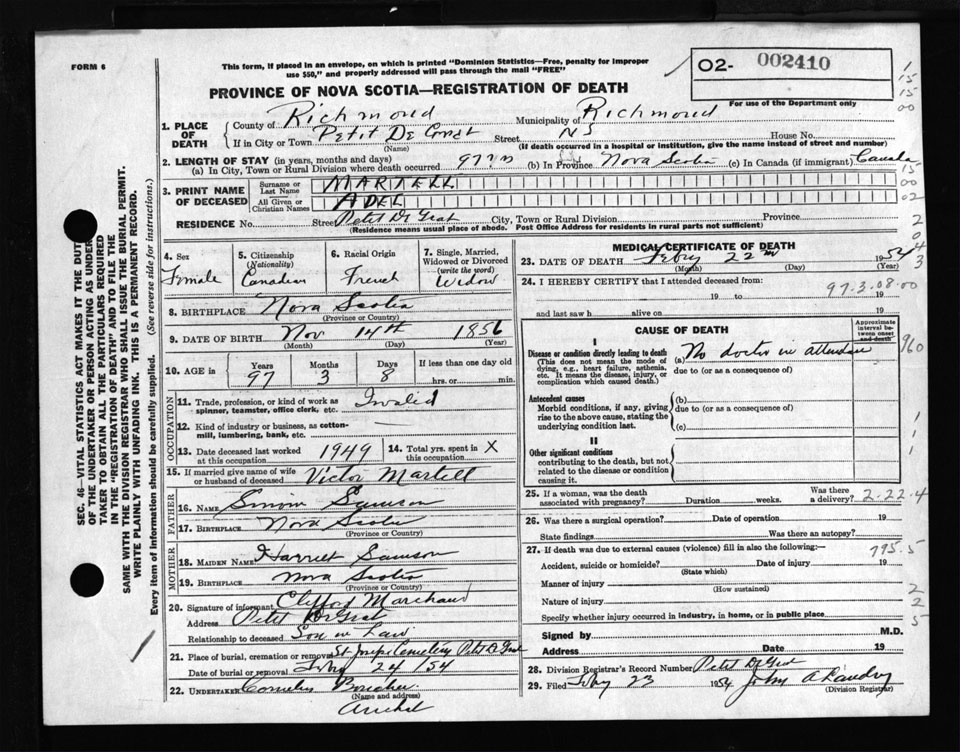 FORM 6
This form, if placed in an envelope, on which is printed "Dominion Statistics—Free, penalty for improper
use $50," and properly addressed will pass through the mail "FREE"
O2- 002410
For use of the Department only
PROVINCE OF NOVA SCOTIA—REGISTRATION OF DEATH
1. PLACE OF DEATH
County of Richmond Municipality of Richmond
If in City or Town Petit De Street NS House No.
(Name) (If death occurred in a hospital or institution, give the name instead of street and number)
2. LENGTH OF STAY (in years, months and days)
(a) In City, Town or Rural Division where death occurred 97 (b) In Province Nova Scotia (c) In Canada (if immigrant) Canada
3. PRINT NAME OF DECEASED
Surname or Last Name MARTELL
All Given or Christian Names ADEL
RESIDENCE No. Street Petit De Grat City, Town or Rural Division Province
(Residence means usual place of abode. Post Office Address for residents in rural parts not sufficient)
4. Sex Female
5. Citizenship (Nationality) Canadian
6. Racial Origin French
7. Single, Married, Widowed or Divorced (write the word) Widow
8. BIRTHPLACE Nova Scotia
(Province or Country)
9. DATE OF BIRTH Nov 14th 1856
(Month) (Day) (Year)
10. AGE in Years 97 Months 3 Days 8 If less than one day old hrs. or min.
OCCUPATION
11. Trade, profession, or kind of work as spinner, teamster, office clerk, etc. Invalid
12. Kind of industry or business, as cotton-mill, lumbering, bank, etc.
13. Date deceased last worked at this occupation 1949
14. Total yrs. spent in this occupation X
15. If married give name of wife or husband of deceased Victor Martell
FATHER
16. NAME Simon Samson
17. BIRTHPLACE Nova Scotia
(Province or Country)
MOTHER
18. MAIDEN NAME Harriet Samson
19. BIRTHPLACE Nova Scotia
(Province or Country)
20. Signature of informant Clifford Marchand
Address Petit De Grat
Relationship to deceased Son in Law
21. Place of burial, cremation or removal St Joseph Cemetery Petit De Grat
Date of burial or removal Feby 24/54
22. UNDERTAKER Cornelius
(Name and address)
Arichat
MEDICAL CERTIFICATE OF DEATH
23. DATE OF DEATH Febry 22 1954
(Month) (Day) (Year)
24. I HEREBY CERTIFY that I attended deceased from:
19 to 19
and last saw h alive on 19
97.3.08.00
CAUSE OF DEATH
Approximate interval between onset and death
I
Disease or condition directly leading to death
(This does not mean the mode of dying, e.g., heart failure, asthenia, etc. It means the disease, injury, or complication which caused death.)
(a) No doctor in attendance
due to (or as a consequence of)
Antecedent causes
Morbid conditions, if any, giving rise to the above cause, stating the underlying condition last.
(b)
due to (or as a consequence of)
(c)
II
Other significant conditions
contributing to the death, but not related to the disease or condition causing it.
25. If a woman, was the death associated with pregnancy? Duration weeks. Was there a delivery?
2.22.4
26. Was there a surgical operation? Date of operation 19
State findings Was there an autopsy?
27. If death was due to external causes (violence) fill in also the following:—
795.5
Accident, suicide or homicide? Date of injury 19
(State which)
Manner of injury
(How sustained)
Nature of injury
Specify whether injury occurred in industry, in home, or in public place
Signed by M.D.
Address Date 19
28. Division Registrar's Record Number Petit De Grat
29. Filed Feby 23 1954 John A Landry
(Division Registrar)
SEC. 46—VITAL STATISTICS ACT MAKES IT THE DUTY
OF THE UNDERTAKER OR PERSON ACTING AS UNDER
TAKER TO OBTAIN ALL THE PARTICULARS REQUIRED
IN THE "REGISTRATION OF DEATH" AND TO FILE THE
SAME WITH THE DIVISION REGISTRAR WHO SHALL ISSUE THE BURIAL PERMIT.
WRITE PLAINLY WITH UNFADING INK. THIS IS A PERMANENT RECORD.
Every item of information should be carefully supplied. (See reverse side for instructions.)
1
15
15
00
15
00
02
2
0
4
3
960
1
1
1
2
2
5